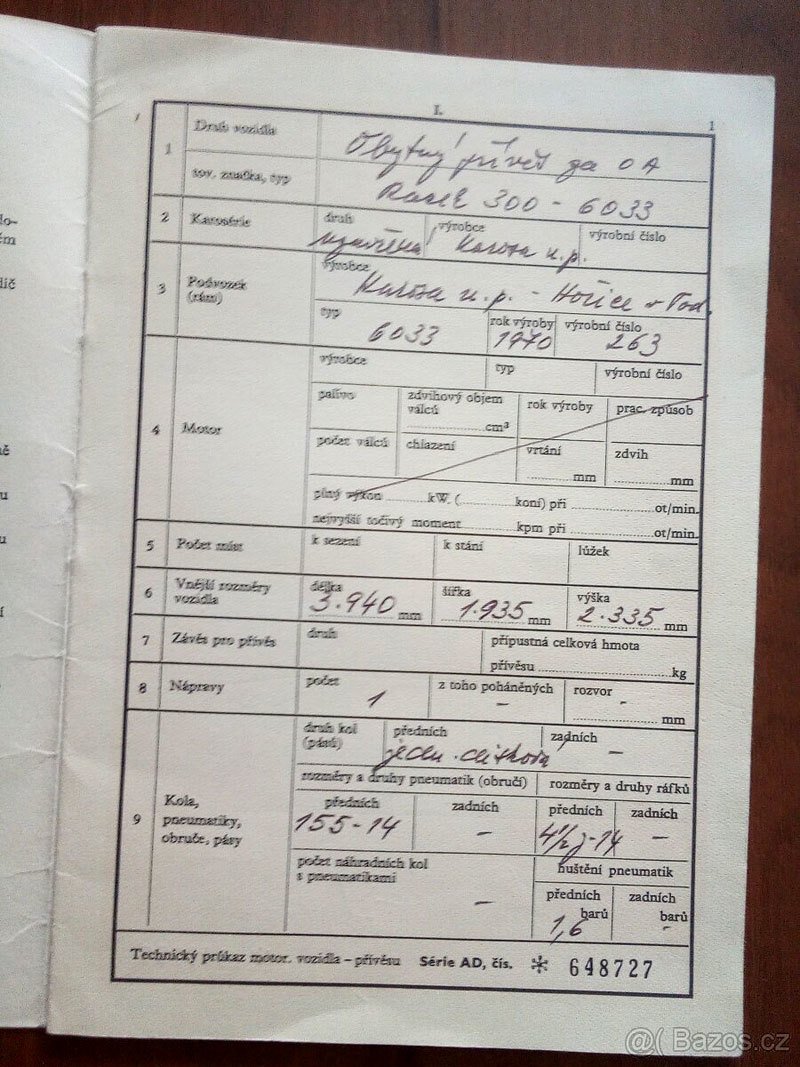 I.
1
1 Druh vozidla Obytný přívěs za OA
tov. značka, typ 300 - 6033
2 Karosérie druh uzavřená výrobce Karosa n.p. výrobní číslo
3 Podvozek (rám) výrobce Karosa n.p. - Hořice v Pod.
typ 6033 rok výroby 1970 výrobní číslo 263
4 Motor výrobce typ výrobní číslo
palivo zdvihový objem válců cm³ rok výroby prac. způsob
počet válců chlazení vrtání mm zdvih mm
plný výkon kW. ( koní) při ot/min.
nejvyšší točivý moment kpm při ot/min.
5 Počet míst k sezení k stání lůžek
6 Vnější rozměry vozidla délka 3.940 mm šířka 1.935 mm výška 2.335 mm
7 Závěs pro přívěs druh přípustná celková hmota
přívěsu kg
8 Nápravy počet 1 z toho poháněných - rozvor - mm
9 Kola, pneumatiky, obruče, pásy
druh kol (pásů) předních jedn. disková zadních -
rozměry a druhy pneumatik (obručí) rozměry a druhy ráfků
předních 155-14 zadních - předních 4 1/2 J-14 zadních -
počet náhradních kol s pneumatikami - huštění pneumatik
předních 1,6 barů zadních - barů
Technický průkaz motor. vozidla – přívěsu Série AD, čís. * 648727
lo-
ém
dič
ě
u
u
í
@( Bazos.cz